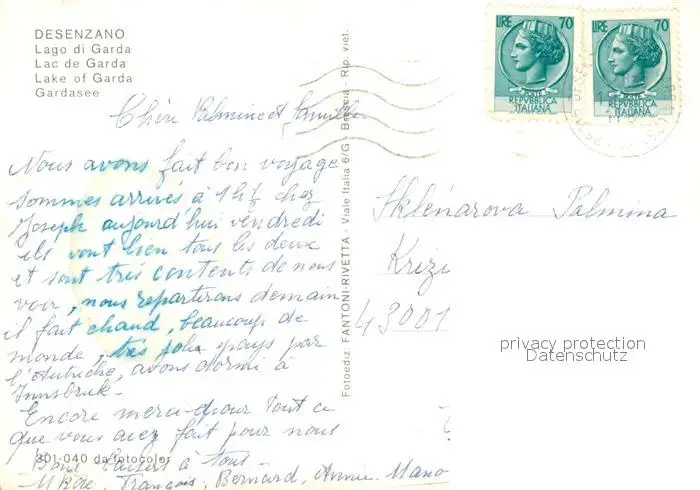 DESENZANO
Lago di Garda
Lac de Garda
Lake of Garda
Gardasee
LIRE 70
REPVBBLICA
ITALIANA
LIRE 70
POSTE
REPVBBLICA
ITALIANA
Chère Palmine et famille
Nous avons fait bon voyage
sommes arrivés à 1h½ chez
Joseph aujourd'hui vendredi
ils vont bien tous les deux
et sont très contents de nous
voir, nous repartirons demain
il fait chaud, beaucoup de
monde, très joli pays par
l'Autriche, avons dormi à
Innsbruk -
Encore merci pour tout ce
que vous avez fait pour nous
Bons baisers à tous -
François, Bernard, Annie
301-040 da fotocolor
Fotoediz. FANTONI-RIVETTA - Viale Italia 6/G - Brescia - Rip. viet.
Sklenárova Palmina
Kriz
43001
privacy protection
Datenschutz